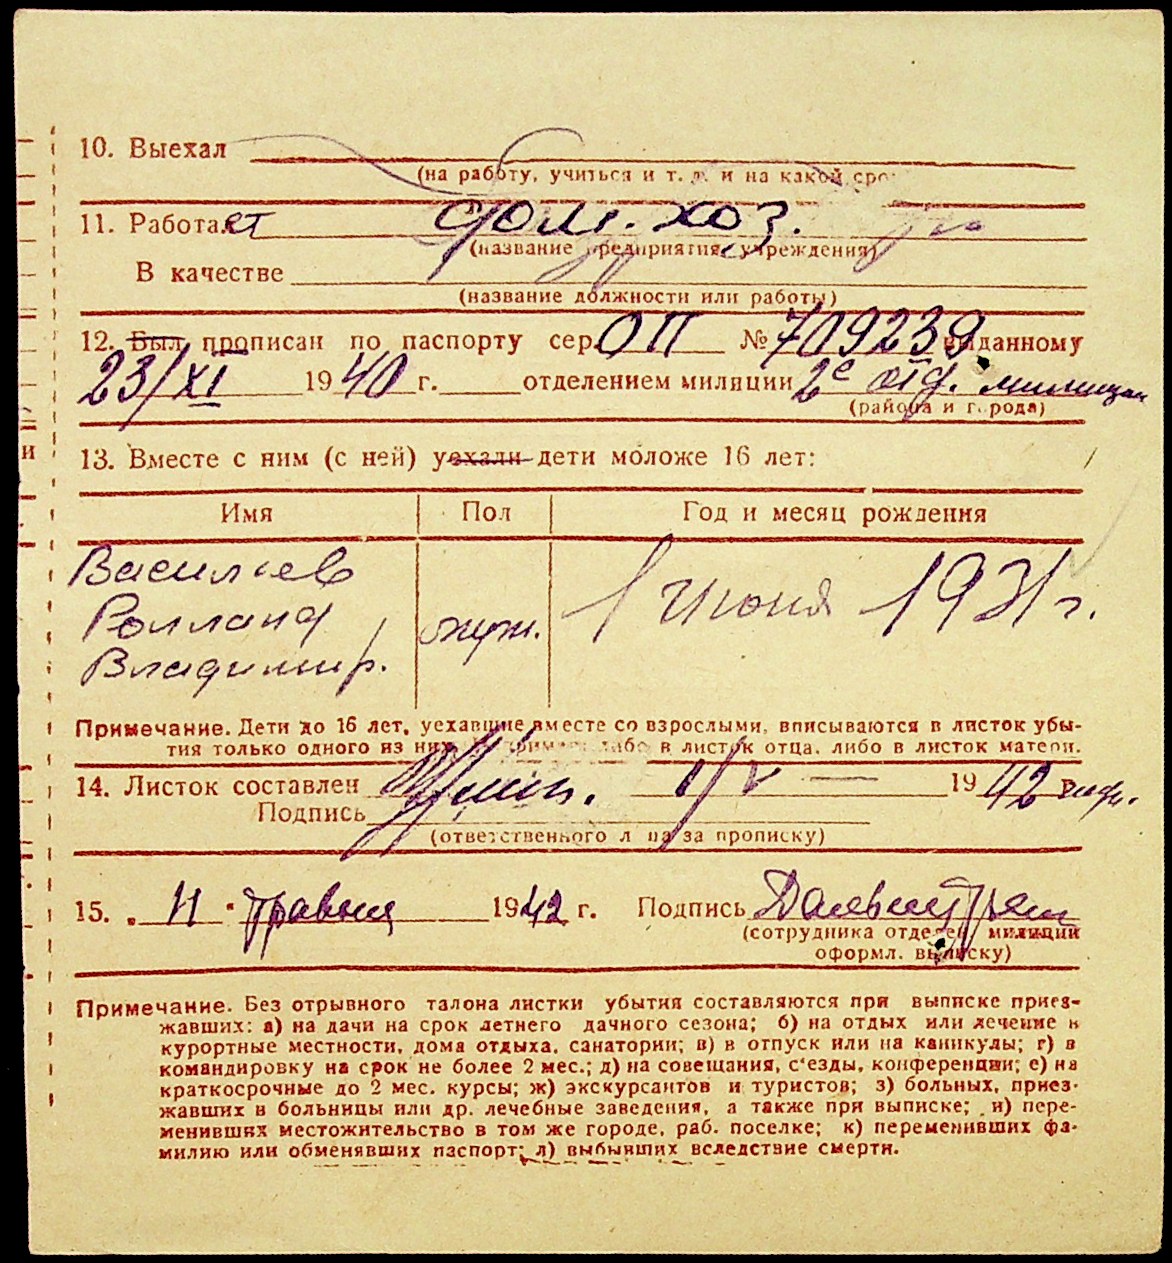 10. Выехал
(на работу, учиться и т. д. и на какой сро
11. Работает дом. хоз.
(название предприятия, учреждения)
В качестве
(название должности или работы)
12. Был прописан по паспорту сер. ОП № 709239 выданному
23/XI 1940 г. отделением милиции 2е отд. милиции
(района и города)
13. Вместе с ним (с ней) уехали дети моложе 16 лет:
Имя Пол Год и месяц рождения
Васильев
Ролланд муж. 1 июня 1931 г.
Владимир.
Примечание. Дети до 16 лет, уехавшие вместе со взрослыми, вписываются в листок убы-
тия только одного из них, например: либо в листок отца, либо в листок матери.
14. Листок составлен 1/V — 1942
Подпись
(ответственного лица за прописку)
15. " 11 " травня 1942 г. Подпись
(сотрудника отделен. милиции
оформл. выписку)
Примечание. Без отрывного талона листки убытия составляются при выписке приез-
жавших: а) на дачи на срок летнего дачного сезона; б) на отдых или лечение в
курортные местности, дома отдыха, санатории; в) в отпуск или на каникулы; г) в
командировку на срок не более 2 мес.; д) на совещания, с'езды, конференции; е) на
краткосрочные до 2 мес. курсы; ж) экскурсантов и туристов; з) больных, приез-
жавших в больницы или др. лечебные заведения, а также при выписке; и) пере-
менивших местожительство в том же городе, раб. поселке; к) переменивших фа-
милию или обменявших паспорт; л) выбывших вследствие смерти.